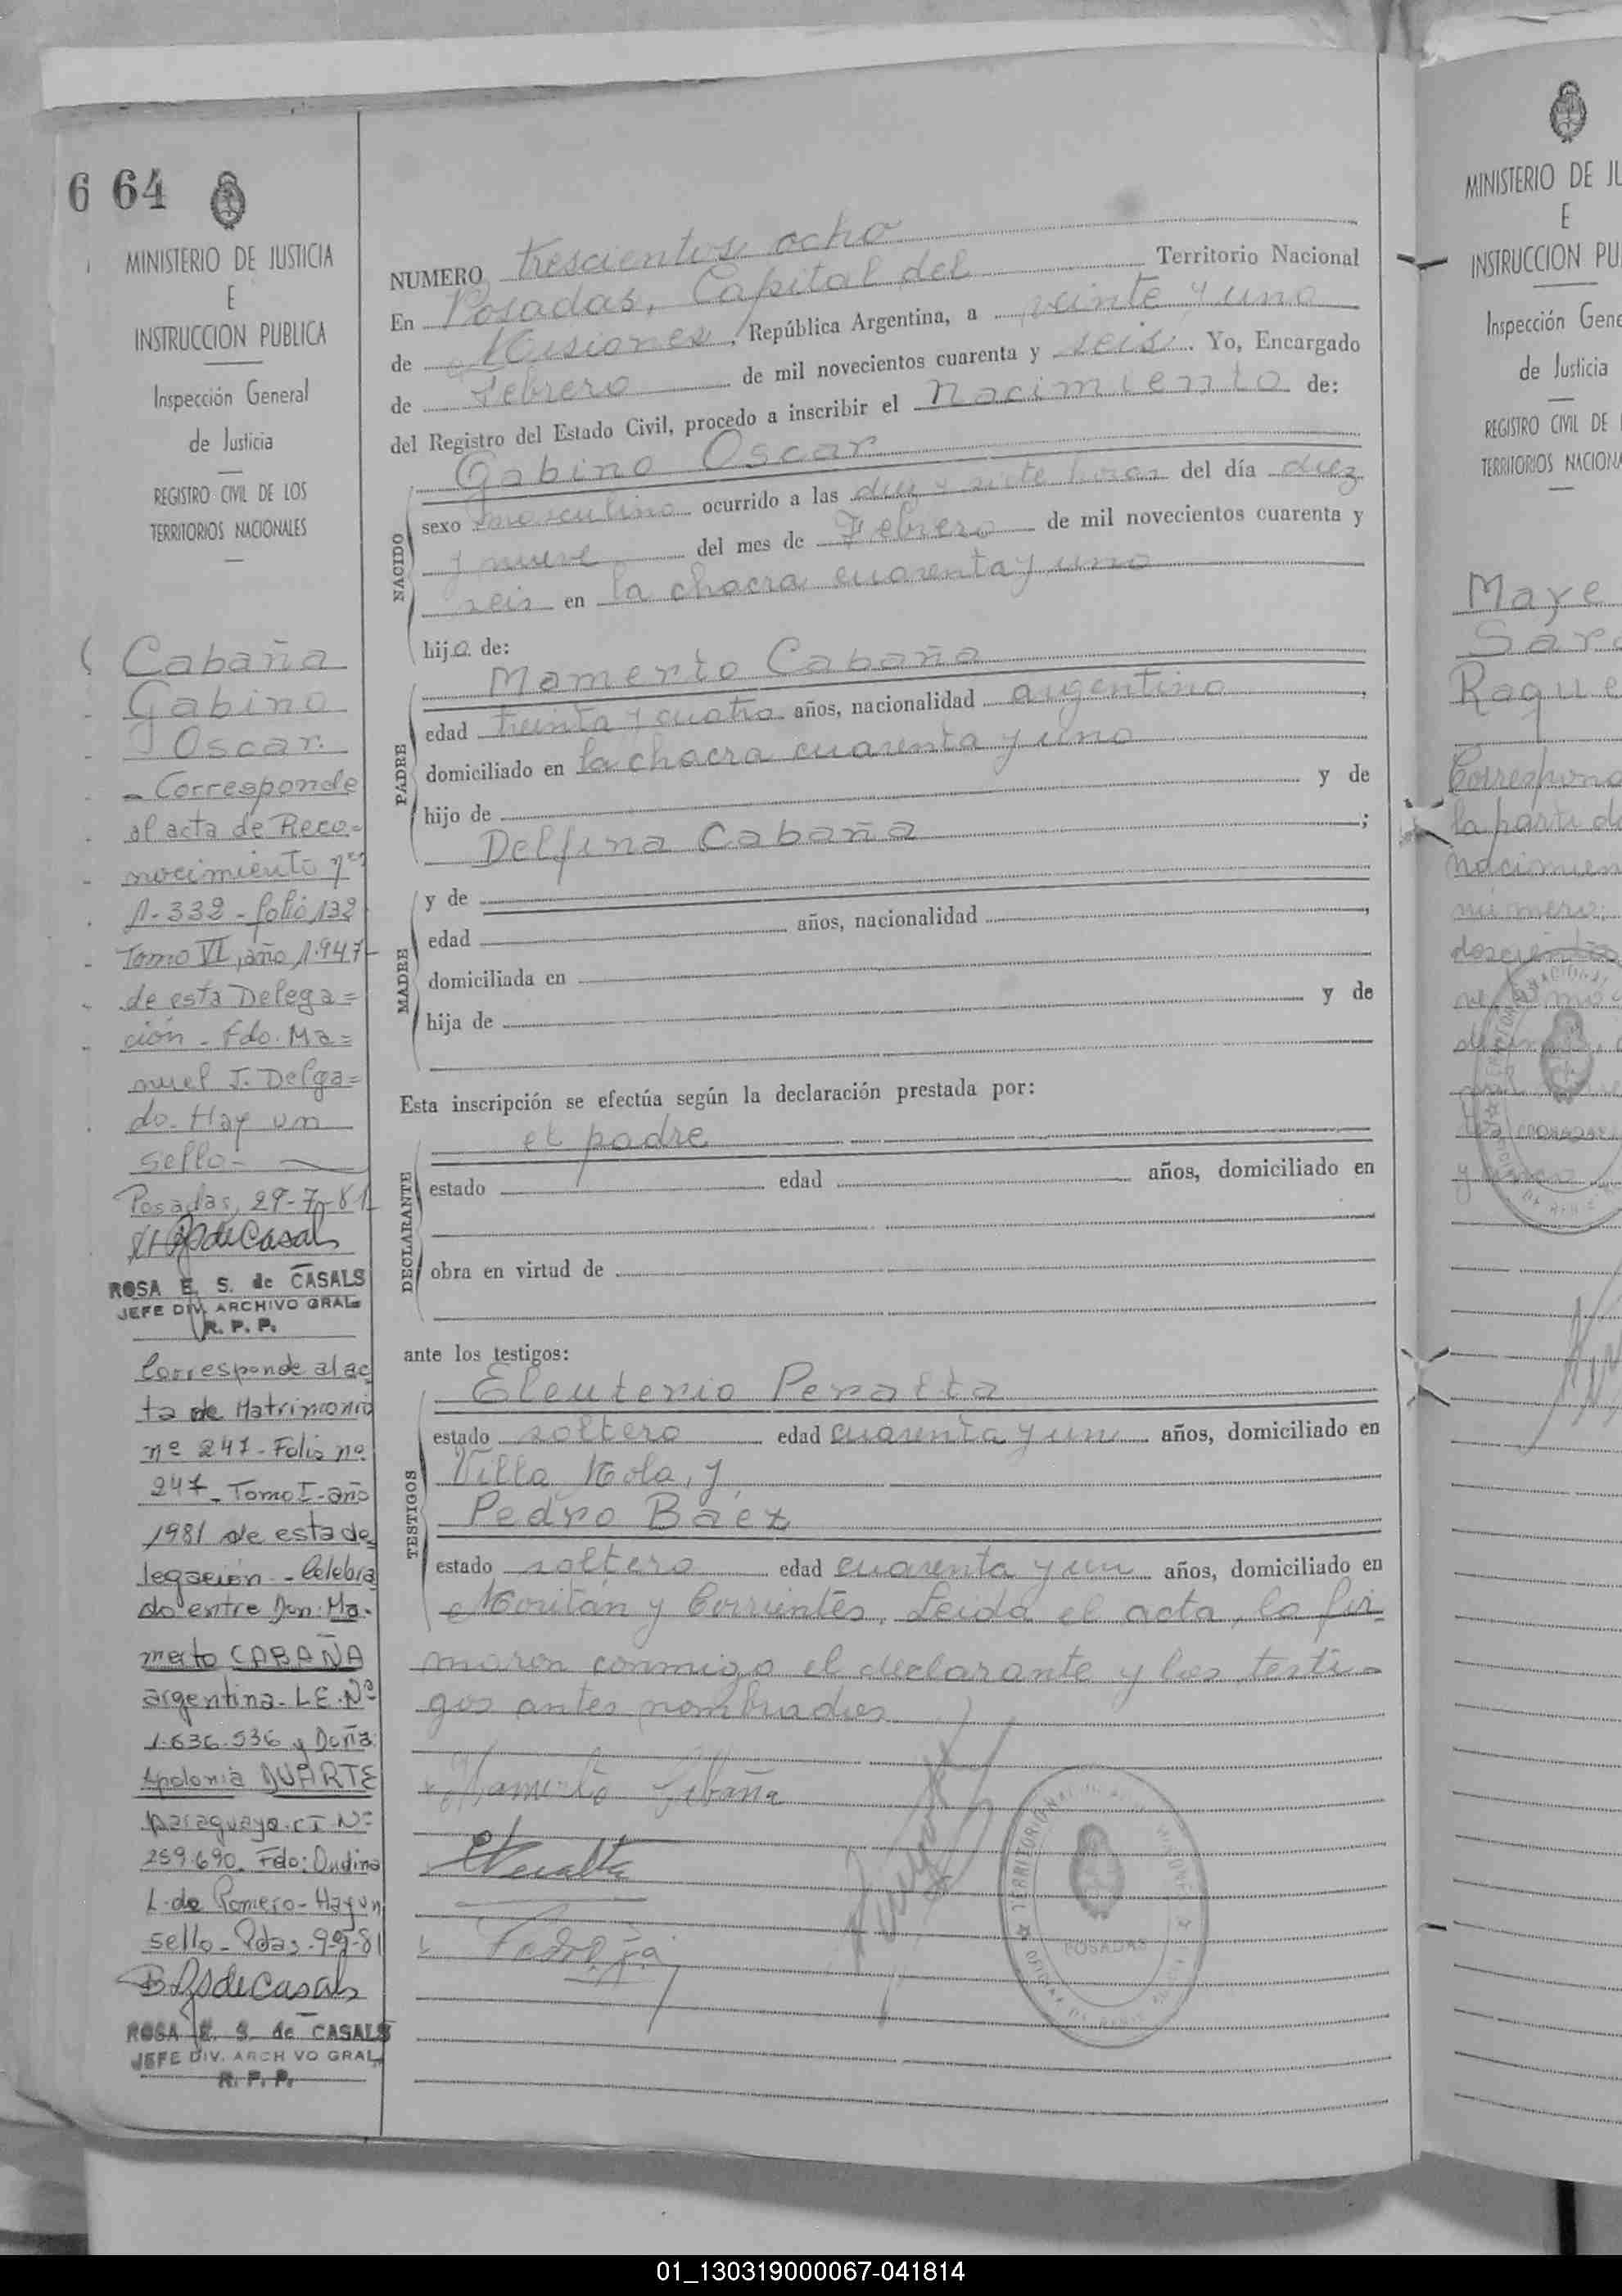 6 64
MINISTERIO DE JUSTICIA
E
INSTRUCCION PUBLICA
Inspección General
de Justicia
REGISTRO CIVIL DE LOS
TERRITORIOS NACIONALES
Cabaña
Gabino
Oscar.
- Corresponde
al acta de Reco=
nocimiento nº
1.332 - folio 132
Tomo VI, año 1.947-
de esta Delega=
ción - Fdo. Ma=
nuel J. Delga=
do. Hay un
sello -
Posadas, 29-7-81
ROSA E. S. de CASALS
JEFE DIV. ARCHIVO GRAL.
R. P. P.
Corresponde al ac
ta de Matrimonio
nº 247 - Folio nº
247 - Tomo I - año
1981 de esta de
legación - Celebra
do entre Don: Ma-
merto CABAÑA
argentina - L.E. Nº
1.636.536 y Doña:
Apolonia DUARTE
paraguaya. C.I. Nº
259.690. Fdo: Ondina
L. de Romero - Hay un
sello - Pdas. 9-9-81
ROSA E. S. de CASALS
JEFE DIV. ARCHIVO GRAL.
R. P. P.
NUMERO trescientos ocho
En Posadas, Capital del Territorio Nacional
de Misiones, República Argentina, a veinte y uno
de Febrero de mil novecientos cuarenta y seis. Yo, Encargado
del Registro del Estado Civil, procedo a inscribir el Nacimiento de:
NACIDO
Gabino Oscar
sexo masculino ocurrido a las diez y siete horas del día diez
y nueve del mes de Febrero de mil novecientos cuarenta y
seis en la chacra cuarenta y uno
hijo de:
PADRE
Mamerto Cabaña
edad treinta y cuatro años, nacionalidad argentino,
domiciliado en la chacra cuarenta y uno
hijo de y de
Delfina Cabaña;
MADRE
y de
edad años, nacionalidad,
domiciliada en
hija de y de
Esta inscripción se efectúa según la declaración prestada por:
DECLARANTE
el padre
estado edad años, domiciliado en
obra en virtud de
ante los testigos:
TESTIGOS
Eleuterio Peralta
estado soltero edad cuarenta y un años, domiciliado en
Villa Mola, y
Pedro Báez
estado soltero edad cuarenta y un años, domiciliado en
Moritán y Corrientes. Leída el acta, la fir-
maron conmigo el declarante y los testi-
gos antes nombrados
Mamerto Cabaña
EPeralta
POSADAS
MINISTERIO DE JU
E
INSTRUCCION PU
Inspección Gene
de Justicia
REGISTRO CIVIL DE
TERRITORIOS NACIONA
Maye
Sara
Raque
Correspond
la parti de
nacimien
número
01_130319000067-041814